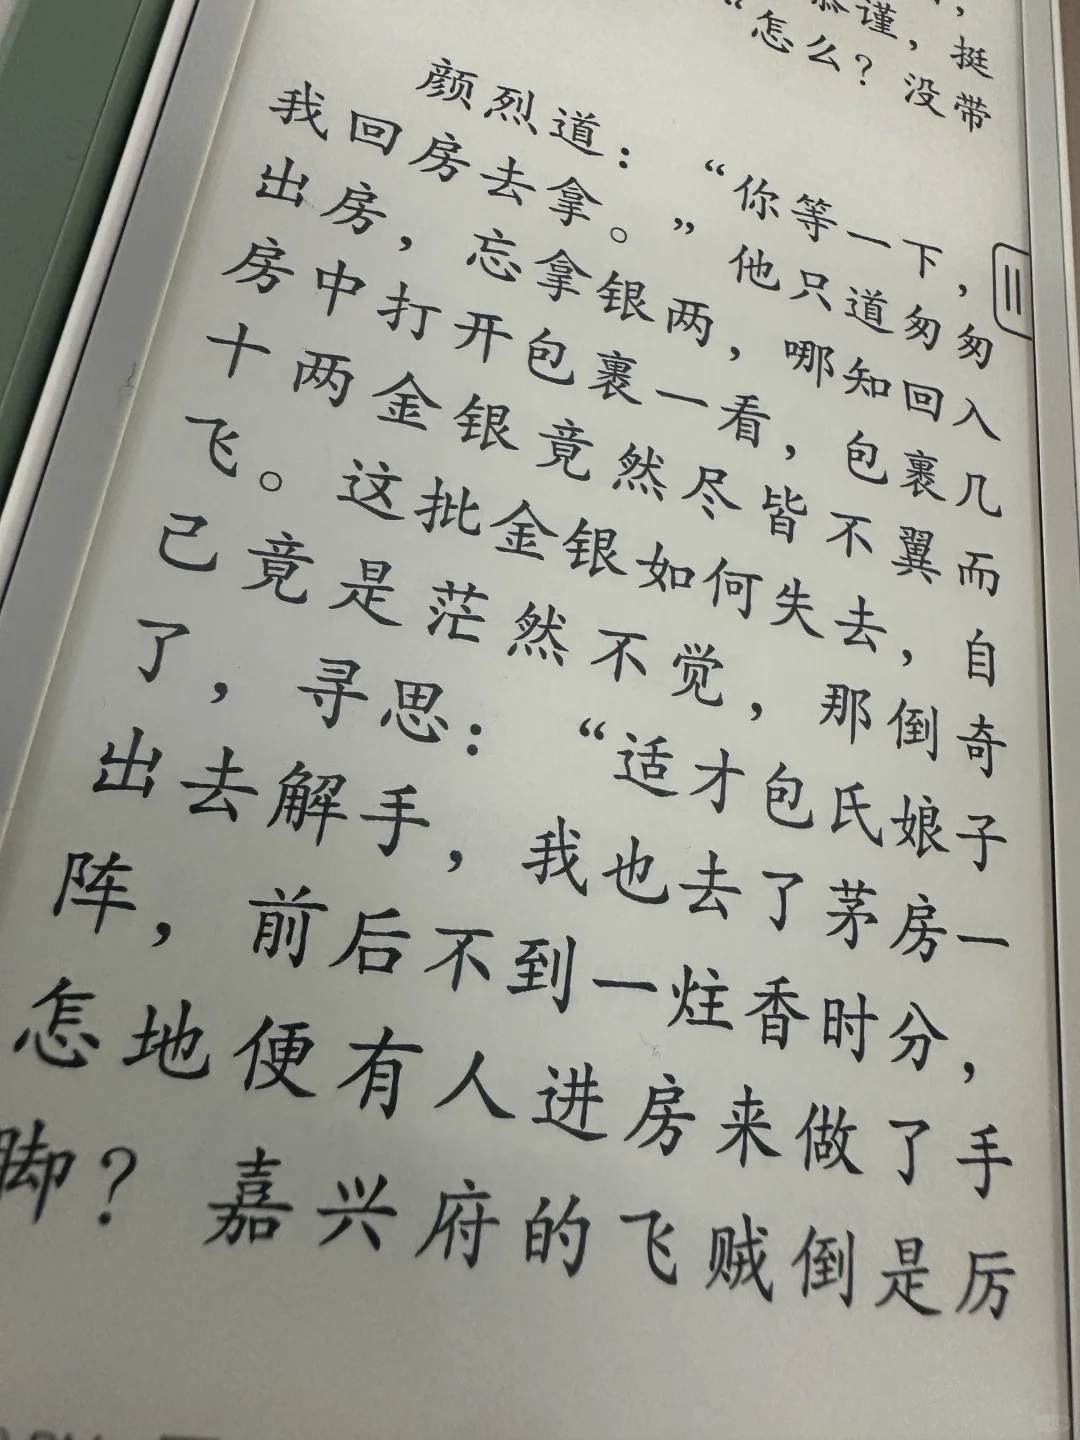 谨，挺
“怎么？没带
颜烈道：“你等一下，
我回房去拿。”他只道匆匆
出房，忘拿银两，哪知回入
房中打开包裹一看，包裹几
十两金银竟然尽皆不翼而
飞。这批金银如何失去，自
己竟是茫然不觉，那倒奇
了，寻思：“适才包氏娘子
出去解手，我也去了茅房一
阵，前后不到一炷香时分，
怎地便有人进房来做了手
脚？嘉兴府的飞贼倒是厉